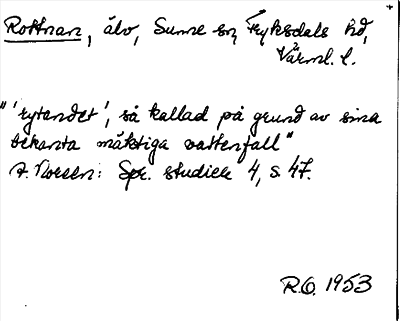 Rottnan, älv, Sunne sn, Fryksdals hd,
Värml. l.
"'rytandet', så kallad på grund av sina
bekanta mäktiga vattenfall"
A. Noreen: Spr. studier 4, s. 47.
R.O. 1953